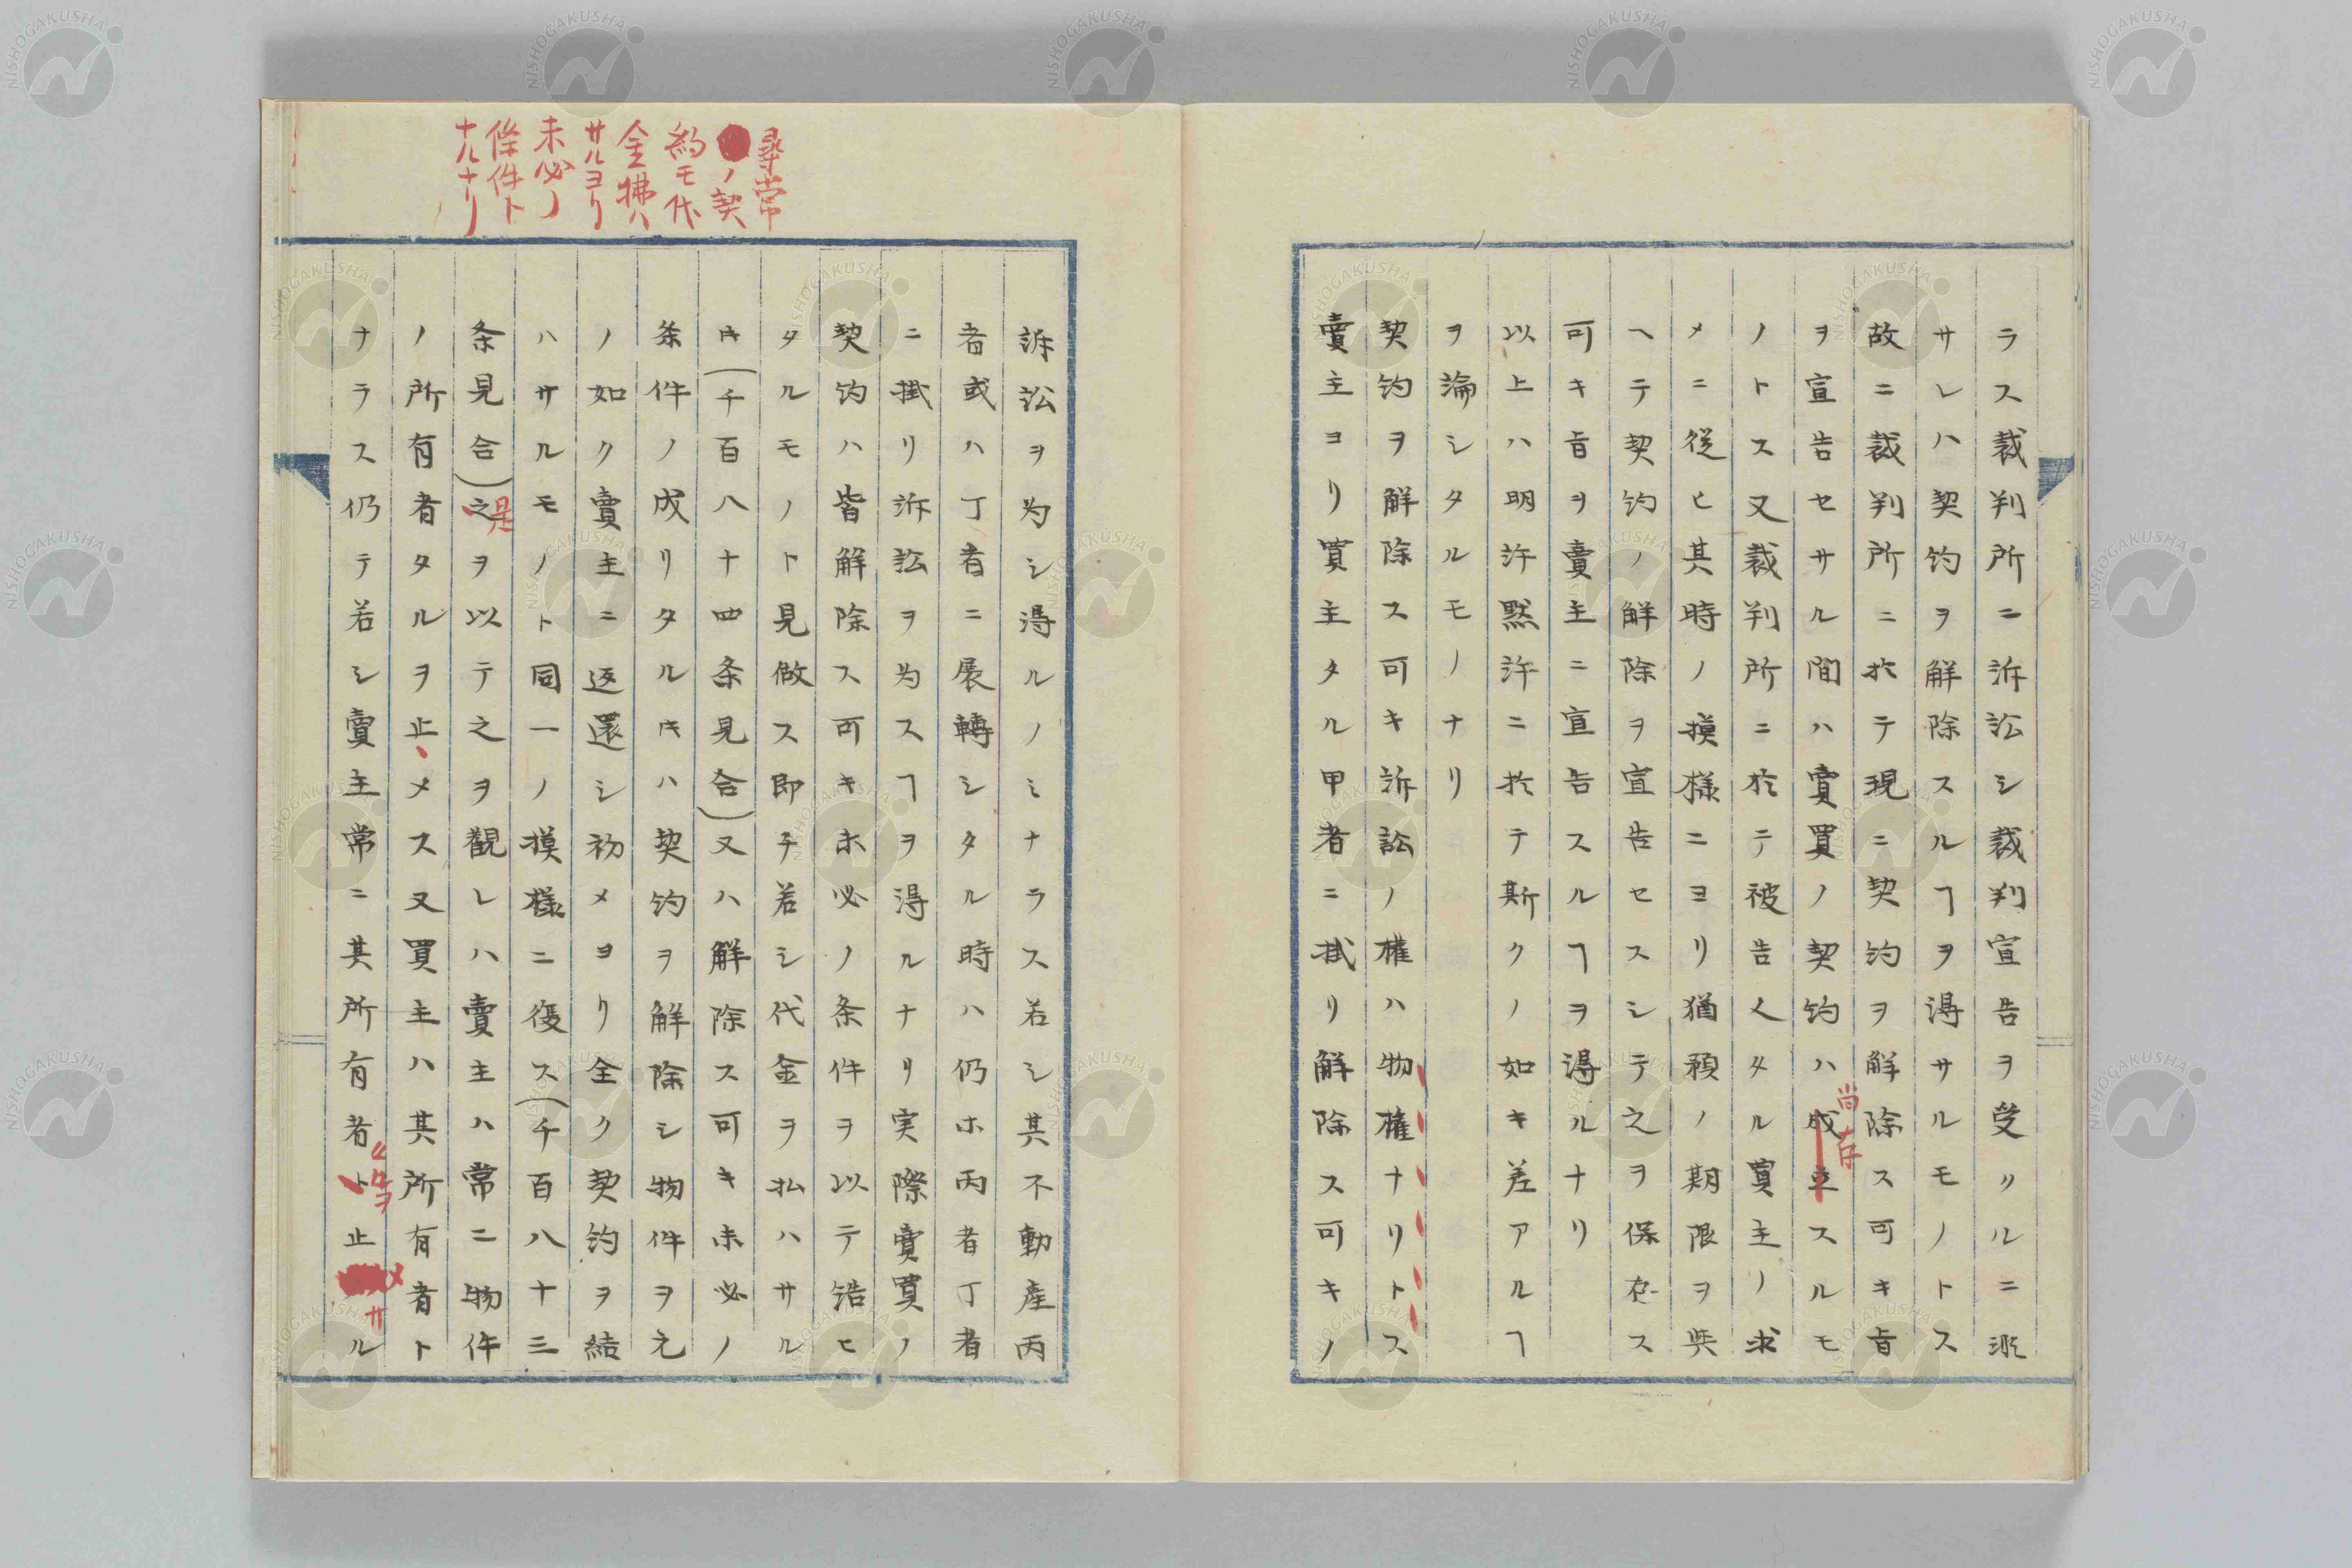 ラス裁判所ニ訴訟シ裁判宣告ヲ受クルニ非
サレハ契約ヲ解除スルヿヲ得サルモノトス
故ニ裁判所ニ於テ現ニ契約ヲ解除ス可キ旨
ヲ宣告セサル間ハ賣買ノ契約ハ成立スルモ
尚存
ノトス又裁判所ニ於テ被告人タル買主ノ求
メニ従ヒ其時ノ摸様ニヨリ猶予ノ期限ヲ與
ヘテ契約ノ解除ヲ宣告セスシテ之ヲ保存ス
可キ旨ヲ賣主ニ宣告スルヿヲ得ルナリ
以上ハ明許黙許ニ於テ斯クノ如キ差アルヿ
ヲ論シタルモノナリ
契約ヲ解除ス可キ訴訟ノ權ハ物權ナリトス
賣主ヨリ買主タル甲者ニ掛リ解除ス可キノ
尋常
ノ契
約モ代
金拂ハ
サルヨリ
未必ノ
條件ト
ナルナリ
訴訟ヲ為シ得ルノミナラス若シ其不動産丙
者或ハ丁者ニ展轉シタル時ハ仍ホ丙者丁者
ニ掛リ訴訟ヲ為スヿヲ得ルナリ実際賣買ノ
契約ハ皆解除ス可キ未必ノ条件ヲ以テ結ヒ
タルモノト見做ス即チ若シ代金ヲ払ハサル
キ(千百八十四条見合)又ハ解除ス可キ未必ノ
条件ノ成リタルキハ契約ヲ解除シ物件ヲ元
ノ如ク賣主ニ返還シ初メヨリ全ク契約ヲ結
ハサルモノト同一ノ摸様ニ復ス(千百八十三
条見合)之ヲ以テ之ヲ觀レハ賣主ハ常ニ物件
是
ノ所有者タルヲ止メス又買主ハ其所有者ト
ナラス仍テ若シ賣主常ニ其所有者ト止ル
タルヲ
メサ
NISHOGAKUSHA